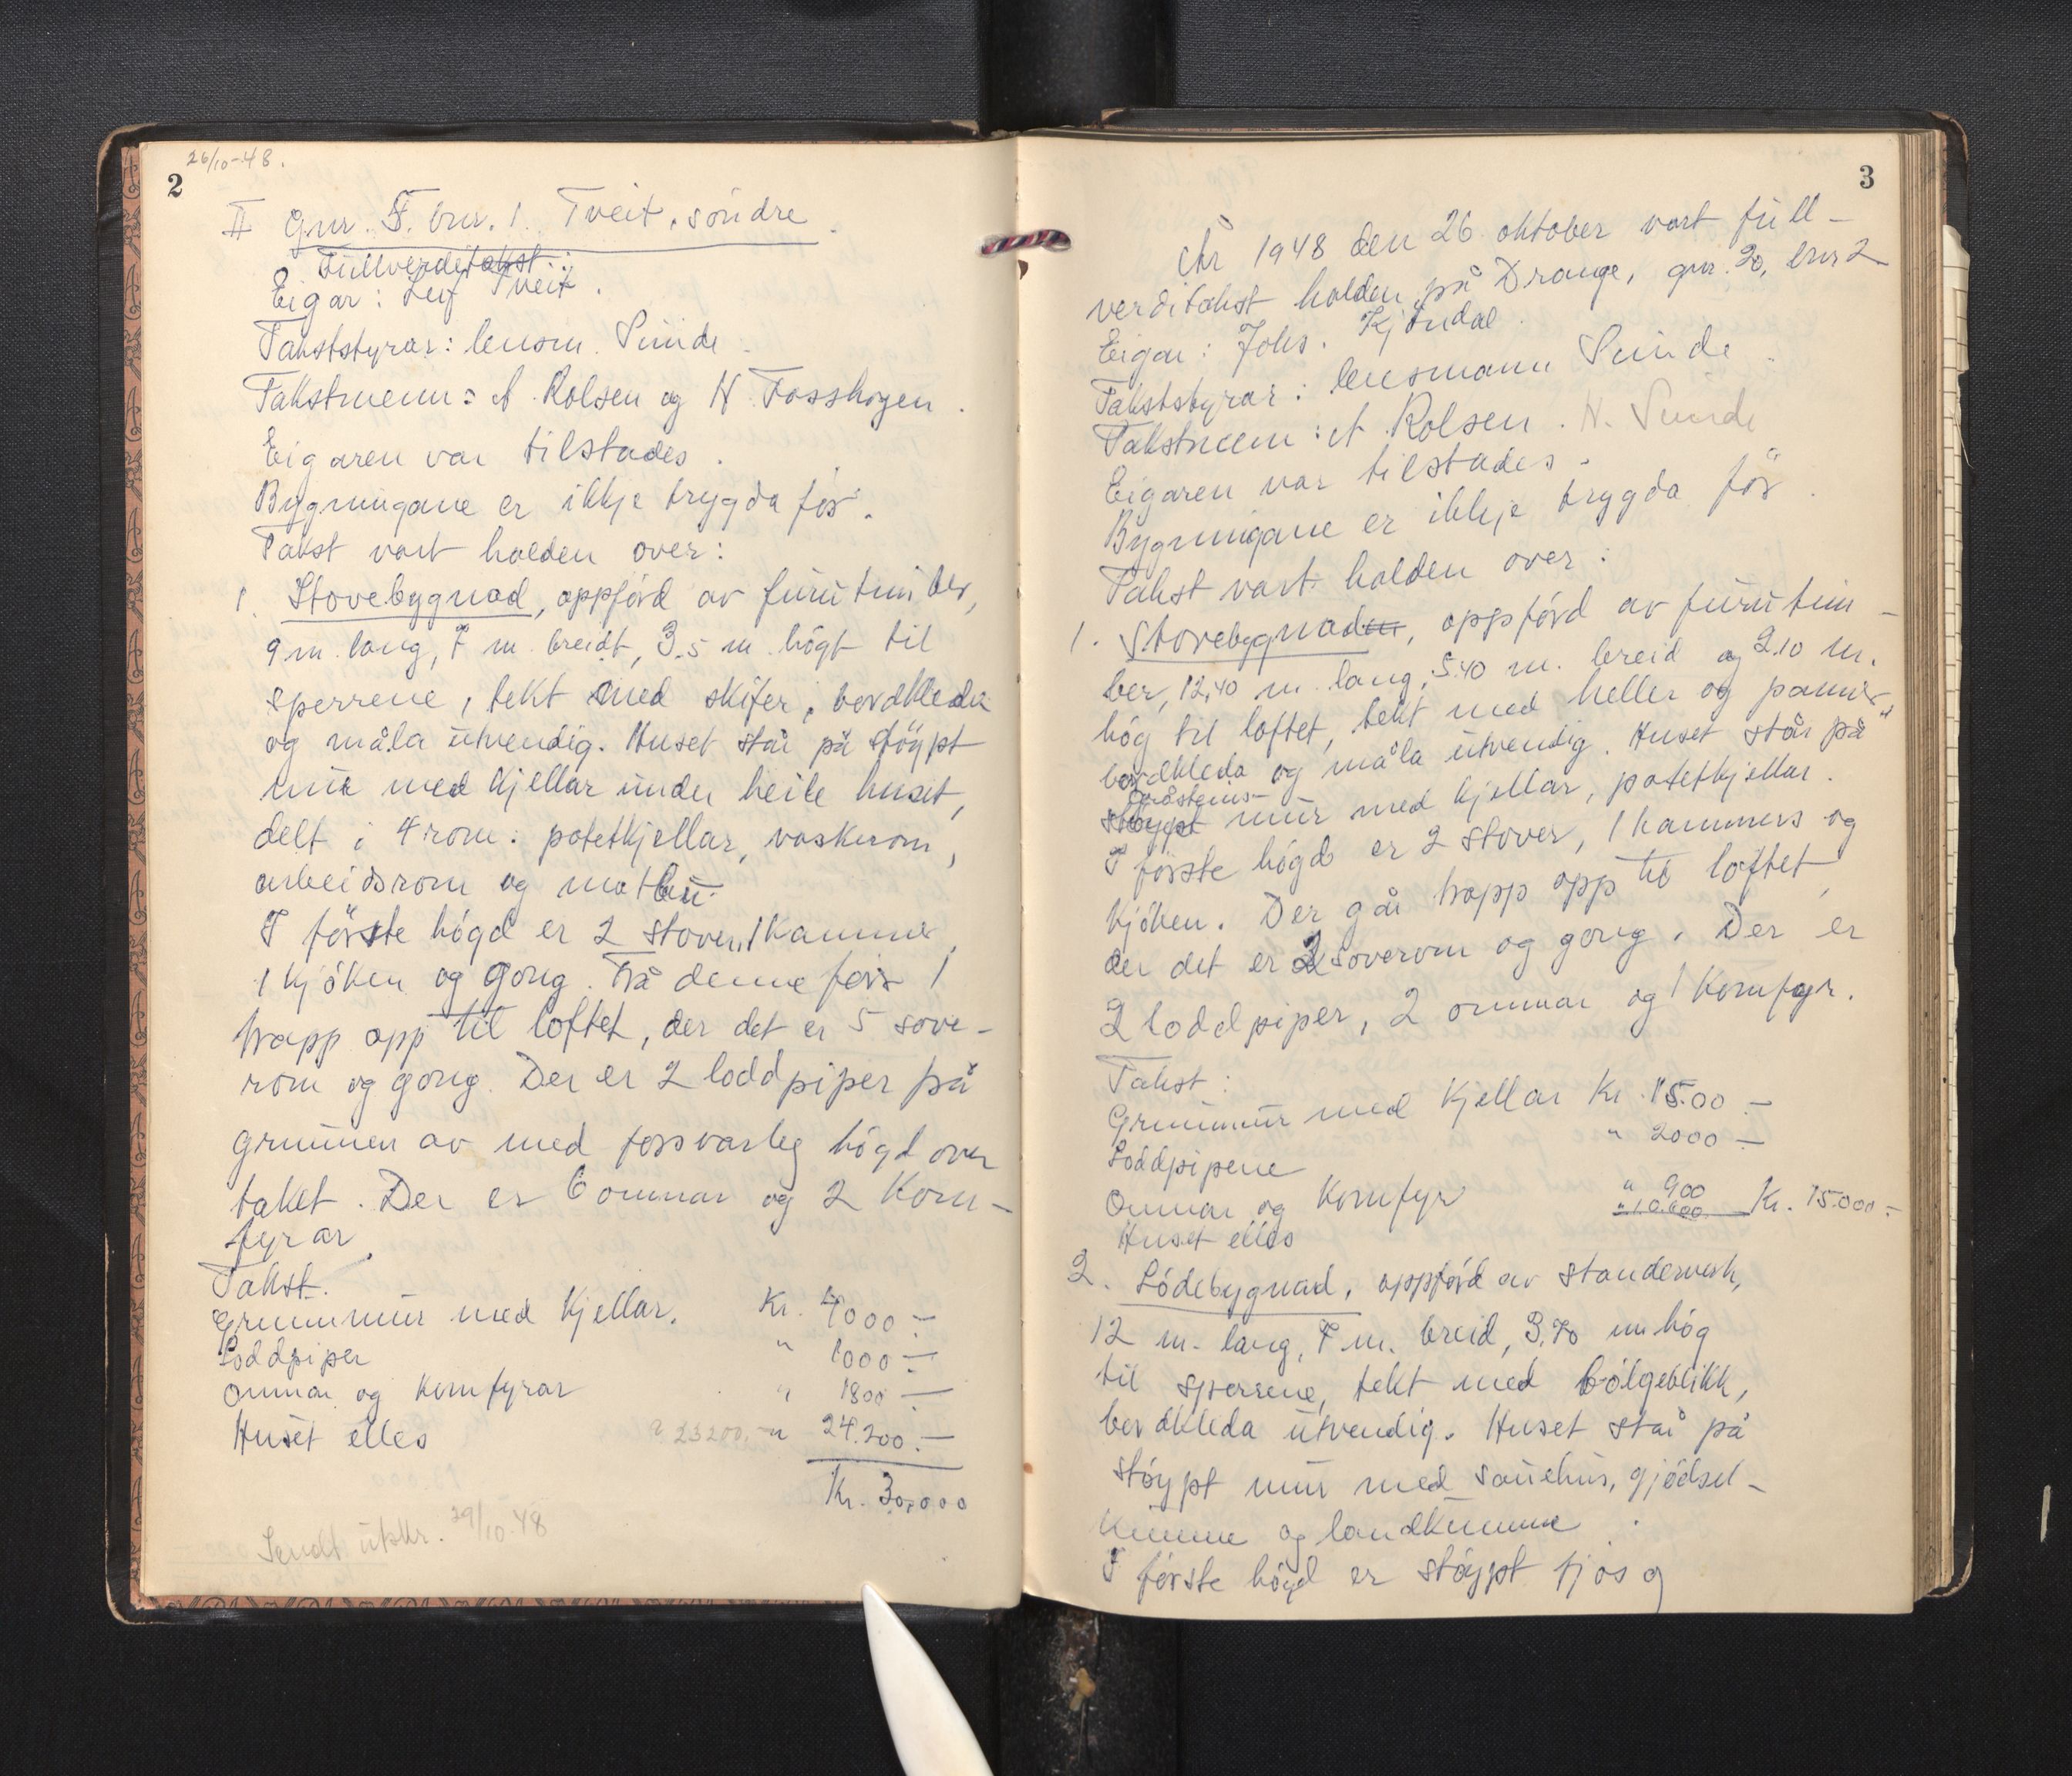 26/10-48.
2
II Gnr. 5. bnr. 1. Tveit, söndre.
Fullverditakst:
Eigar: Leif Tveit.
Takststyrar: lensm. Sunde.
Takstmenn: A. Rolsen og H. Fosshagen.
Eigaren var tilstades.
Bygningane er ikkje trygda för.
Takst vart halden over:
1. Stovebygnad, oppförd av furutimber,
9 m. lang, 7 m. breidt, 3.5 m. högt til
sperrene, tekt med skifer, bordkleda
og måla utvendig. Huset står på stöypt
mur med kjellar under heile huset,
delt i 4 rom: potetkjellar, vaskerom,
arbeidsrom og matbu.
I förste högd er 2 stover, 1 kammer,
1 kjöken og gong. Frå denne förer 1
trapp opp til loftet, der det er 5 sove-
rom og gong. Der er 2 loddpiper på
grunnen av med forsvarleg högd over
taket. Der er 6 omnar og 2 kom-
fyrar.
Takst.
Grunnmur med kjellar. Kr. 4000.-
Loddpiper " 1000.-
Omnar og komfyrar " 1800.-
Huset elles 23200.- " 24.200.-
Kr. 30.000
Sendt utskr. 29/10-48
3
År 1948 den 26 oktober vart full-
verditakst halden på Drange, gnr. 20, bnr 2
Eigar: Johs. Kjöndal.
Takststyrar: lensmann Sunde.
Takstmenn: A. Rolsen. H. Sunde
Eigaren var tilstades.
Bygningane er ikkje trygda för.
Takst vart halden over:
1. Stovebygnaden, oppförd av furutim-
ber, 12,40 m. lang, 5.40 m. breid og 2.10 m.
hög til loftet, tekt med heller og panner,
bordkleda og måla utvendig. Huset står på
gråsteins-
stöypt mur med kjellar, potetkjellar.
I förste högd er 2 stover, 1 kammers og
kjöken. Der går trapp opp til loftet,
der det er 2 soverom og gong. Der er
2 loddpiper, 2 omnar og 1 komfyr.
Takst:
Grunnmur med kjellar Kr. 1500.-
Loddpipene " 2000.-
Omnar og komfyr " 900
Huset elles " 10.600. Kr. 15.000.-
2. Lödebygnad, oppförd av standerverk,
12 m. lang, 7 m. breid, 3.70 m hög
til sperrene, tekt med bölgeblikk,
bordkleda utvendig. Huset står på
stöypt mur med sauehus, gjödsel-
kumme og landkumme.
I förste högd er stöypt fjös og